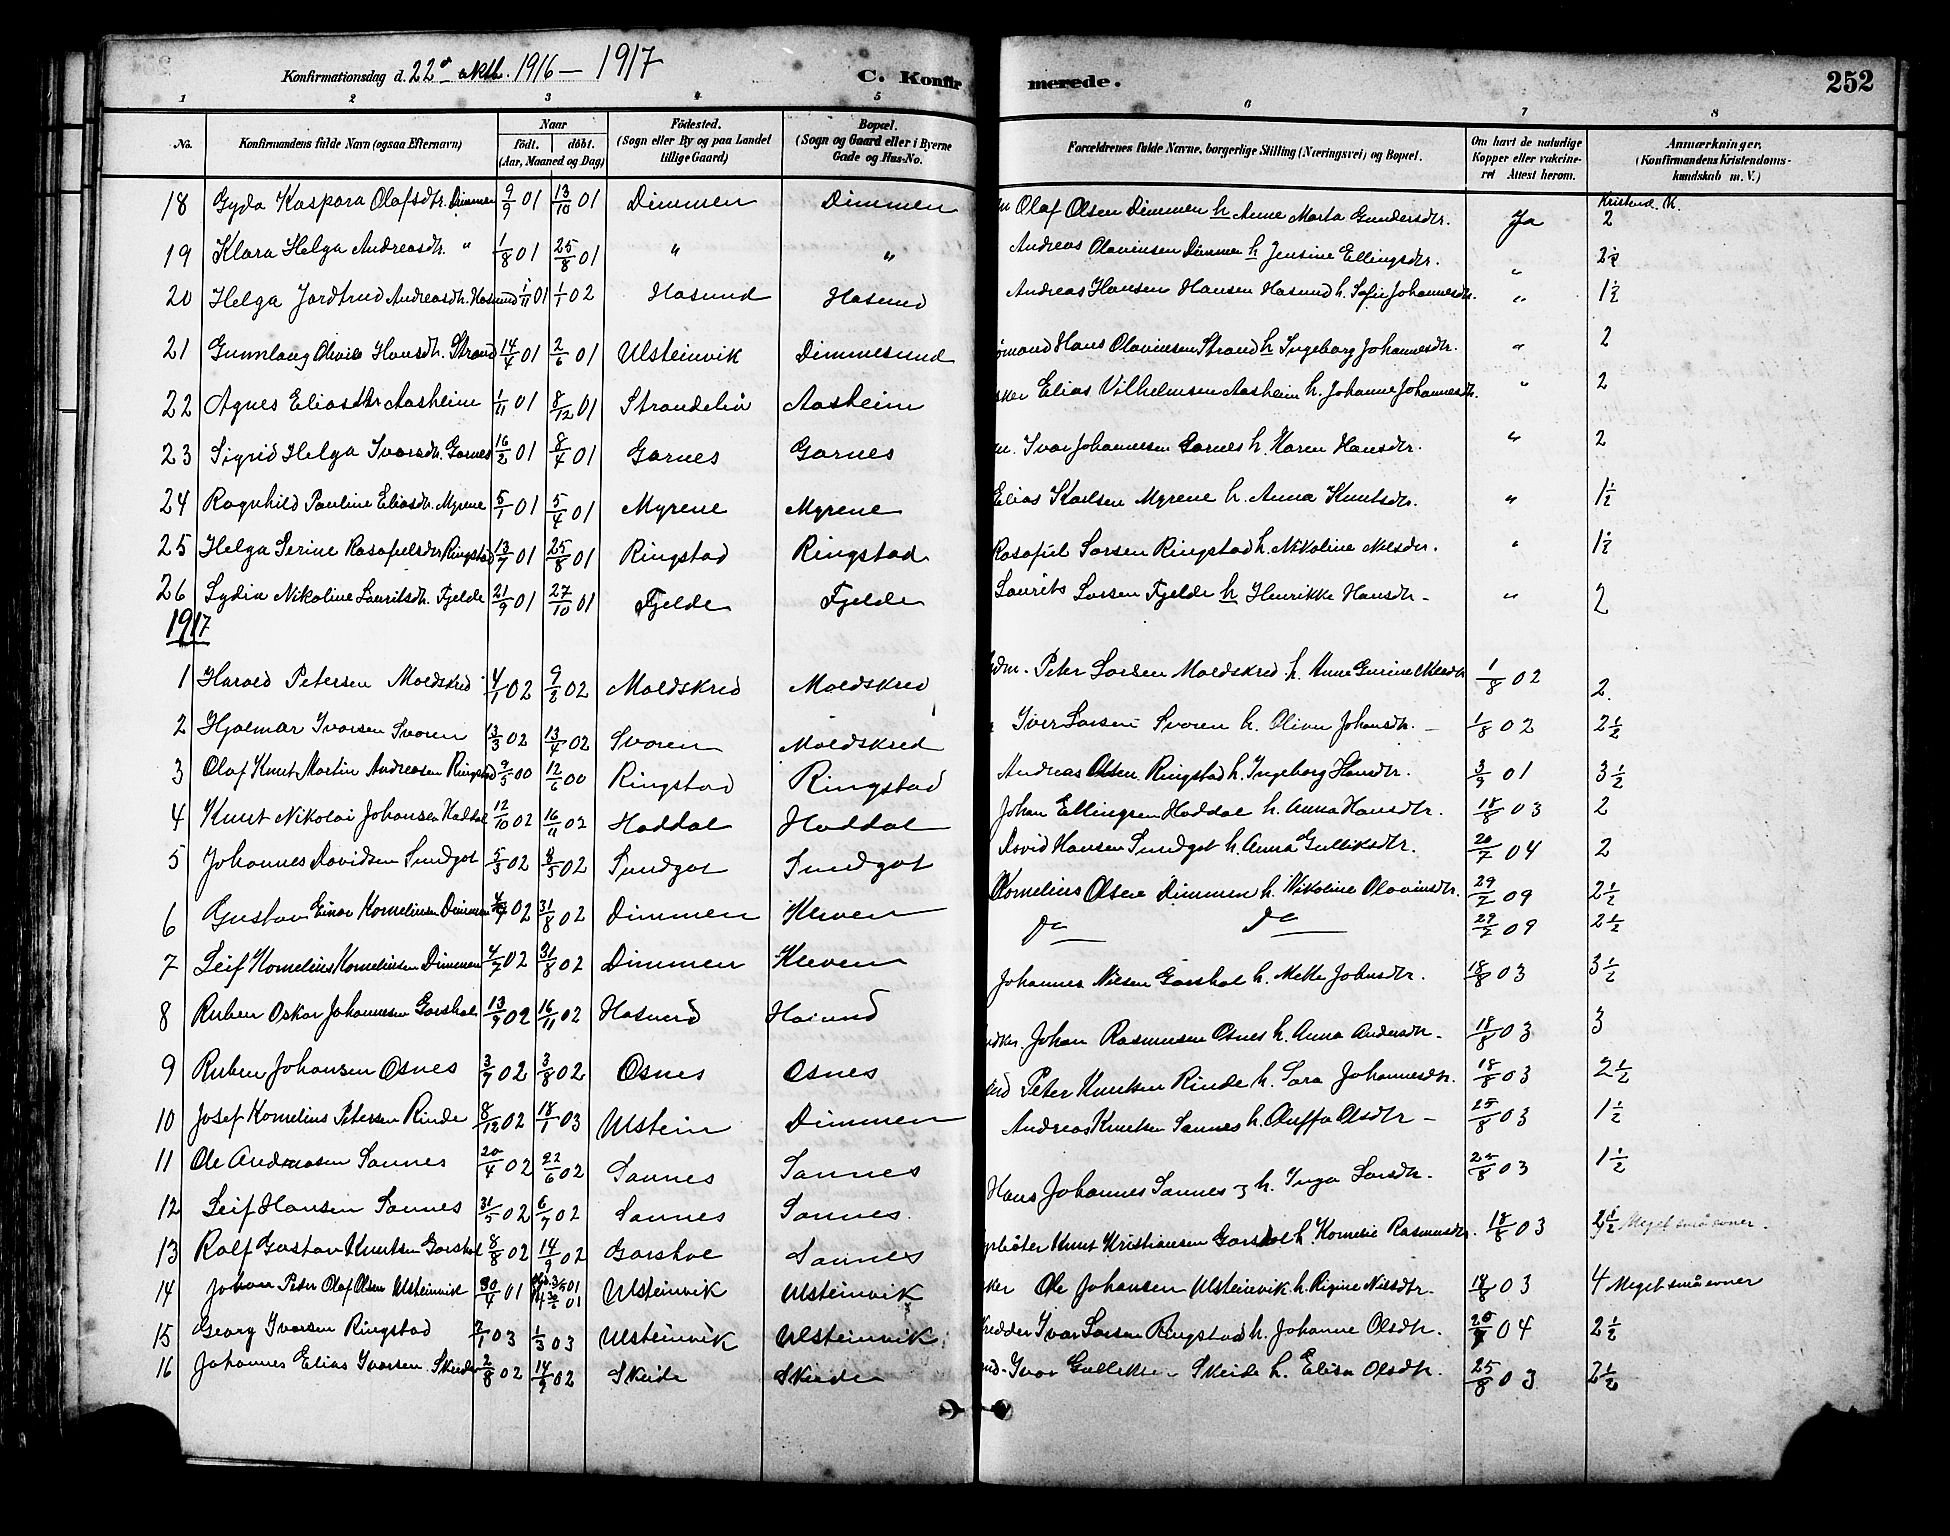 Konfirmationsdag d. 22d oktb. 1916 — 1917
C. Konfirmerede.
252
1 2 3 4 5 6 7 8
No. Konfirmandens fulde Navn (ogsaa Efternavn) Naar født. døbt. (Aar, Maaned og Dag) Födested. (Sogn eller By og paa Landet tillige Gaard) Bopæl. (Sogn og Gaard eller i Byerne Gade og Hus-No. Forældrenes fulde Navne, borgerlige Stilling (Næringsvei) og Bopæl. Om havt de naturlige Kopper eller vakcineret Attest herom. Anmærkninger. (Konfirmandens Kristendomskundskab m. V.)
Kristend. K.
18 Gyda Kaspara Olafsdtr. Dimmen 9/9 01 13/10 01 Dimmen Dimmen Olaf Olsen Dimmen h Anne Marta Gundersdtr. Ja 2
19 Klara Helga Andreasdtr. " 1/8 01 25/8 01 " " Andreas Olavinsen Dimmen h Jensine Ellingsdtr. " 2½
20 Helga Jordtrud Andreasdtr. Hasund 1/11 01 1/1 02 Hasund Hasund Andreas Hansen Hasund h. Sofie Johannesdtr. " 1½
21 Gunnlaug Olivie Hansdtr. Strand 14/4 01 2/6 01 Ulsteinvik Dimmesund Hans Olavinsen Strand h Ingeborg Johannesdtr. " 2
22 Agnes Eliasdtr Aasheim 1/11 01 8/12 01 Aasheim Elias Vilhelmsen Aasheim h. Johanne Johannesdtr. " 2
23 Sigrid Helga Ivarsdtr. Garnes 16/2 01 8/4 01 Garnes Garnes Ivar Johannesen Garnes h. Karen Hansdtr. " 2
24 Ragnhild Pauline Eliasdtr. Myrene 5/1 01 5/4 01 Myrene Myrene Elias Karlsen Myrene h. Anna Knutsdtr. " 1½
25 Helga Serine Rasafielsdtr Ringstad 13/7 01 25/8 01 Ringstad Ringstad Rasafiel Larsen Ringstad h. Nikoline Nilsdtr. " 1½
26 Lydia Nikoline Lauritsdtr. Fjelde 21/9 01 27/10 01 Fjelde Fjelde Laurits Larsen Fjelde h Henrikke Hansdtr - " 2
1917
1 Harald Petersen Moldskred 4/1 02 9/2 02 Moldskred Moldskred Peter Larsen Moldskred h. 1/8 02 2.
2 Hjalmar Ivarsen Svoren 13/3 02 13/4 02 Svoren Moldskred Iver Larsen Svoren h. Johansdtr. - 1/8 02 2½
3 Olaf Knut Martin Andreasen Ringstad 9/5 00 12/6 00 Ringstad Ringstad Andreas Olsen Ringstad h. Ingeborg Hansdtr. 3/9 01 3½
4 Knut Nikolai Johansen Haddal 12/10 02 16/11 02 Haddal Haddal Johan Ellingsen Haddal h. Anna Hansdtr. 18/8 03 2
5 Johannes Davidsen Sundgot 5/3 02 8/5 02 Sundgot Sundgot David Hansen Sundgot h. Anna Gulliksdtr. 20/7 04 2
6 Gustav Einar Kornelius'n Dimmen 4/7 02 31/8 02 Dimmen Kleven Kornelius Olsen Dimmen h. Nikoline Olavinsdtr. 29/7 09 2½
7 Leif Kornelius Korneliussen Dimmen 4/7 02 31/8 02 Dimmen Kleven do do 29/7 09 2½
8 Ruben Oskar Johannesen Garshol 13/9 02 16/11 02 Hasund Hasund Johannes Nilsen Garshol h. Mette Johnsdtr. 18/8 03 3½
9 Ruben Johansen Osnes 3/7 02 3/8 02 Osnes Osnes Johan Rasmussen Osnes h. Anna Andersdtr. 18/8 03 3
10 Josef Kornelius Petersen Rinde 8/12 02 18/1 03 Ulstein Dimmen Peter Knutsen Rinde h. Sara Johannesdtr. 18/8 03 2½
11 Ole Andreasen Sannes 20/4 02 22/6 02 Sannes Sannes Andreas Knutsen Sannes h. Oluffa Olsdtr - 25/8 03 1½
12 Leif Hansen Sannes 31/5 02 6/7 02 Sannes Sannes Hans Johannes Sannes h. Inga Larsdtr. 25/8 03 1½
13 Ralf Gustav Knutsen Garshol 8/8 02 14/9 02 Garshol Sannes Knut Kristiansen Garshol h. Kornelie Rasmusdtr. 18/8 03 2½ Meget små evner.
14 Johan Peter Olaf Olsen Ulsteinvik 30/4 01 Ulsteinvik Ulsteinvik Ole Johansen Ulsteinvik h. Regine Nilsdtr. 18/8 03 4 Meget små evner
15 Georg Ivarsen Ringstad 7/1 03 1/3 03 Ulsteinvik Ulsteinvik Ivar Larsen Ringstad h. Johanne Olsdtr. 20/7 04 2½
16 Johannes Elias Ivarsen Skeide 2/8 02 14/9 02 Skeide Skeide Ivar Gulliksen Skeide h. Elisa Olsdtr. 25/8 03 2½